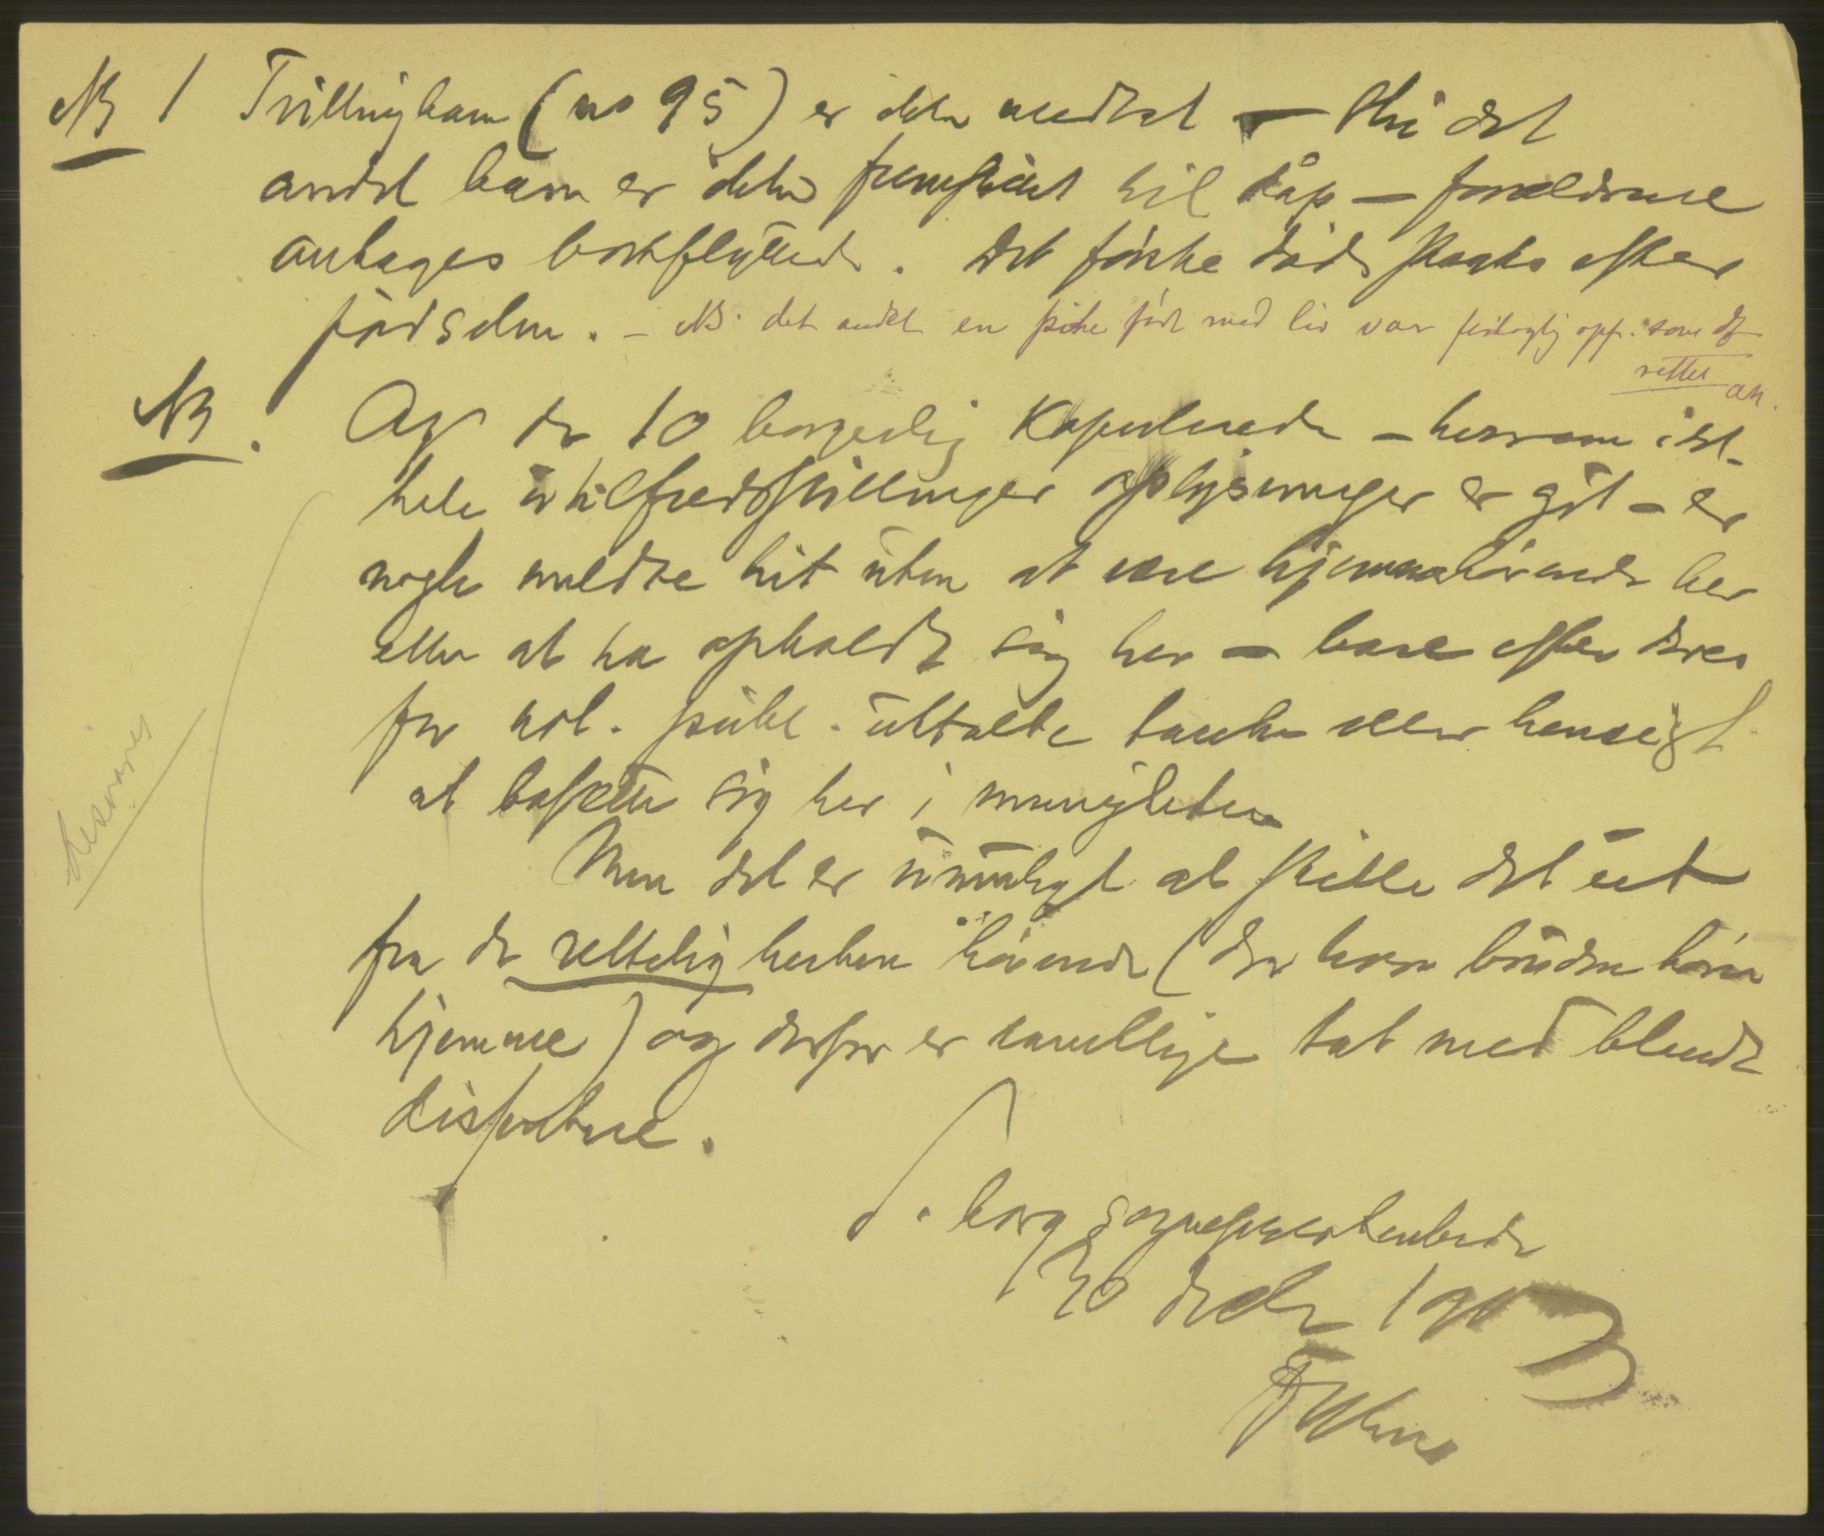 NB 1 Tvillingbarn (no 95) er ikke medtat – thi det
andet barn er ikke fremstillet til dåp – forældrene
antages bortflyttede. Det første døde straks efter
fødselen. – NB. det andet en pike født med liv var feilagtig opf. som df
rettet an.
NB. Av de 10 borgerlig kopulerede – hvorom i det
hele utilfredsstillende oplysninger er git – er
nogle meldte hit uten at være hjemmehørende her
eller at ha opholdt sig her – bare efter deres
for not. publ. uttalte tanke eller hensigt
at bosætte sig her i menigheten
Men det er umuligt at skille det ut
fra de rettelig herhen hørende (der hvor bruden hører
hjemme) og derfor er samtlige tat med blandt
disputere.
besvares
S.borg sogneprestembede
30 decbr 1903